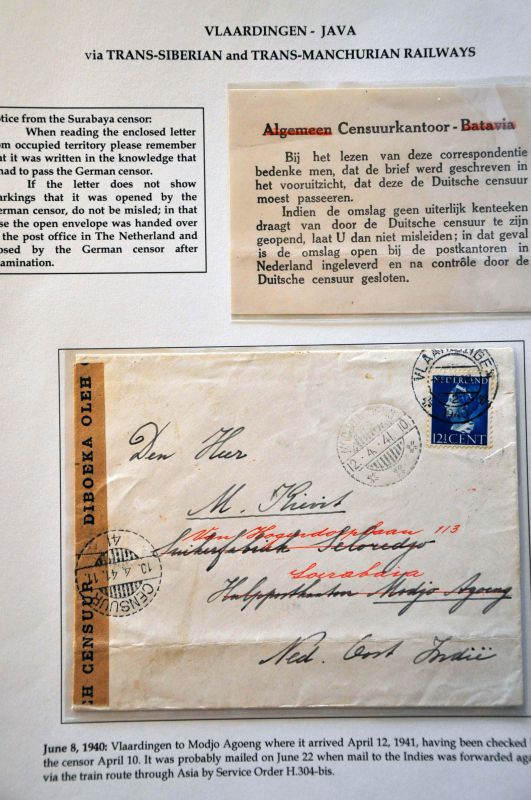 VLAARDINGEN - JAVA
via TRANS-SIBERIAN and TRANS-MANCHURIAN RAILWAYS
otice from the Surabaya censor:
When reading the enclosed letter
om occupied territory please remember
at it was written in the knowledge that
had to pass the German censor.
If the letter does not show
arkings that it was opened by the
erman censor, do not be misled; in that
se the open envelope was handed over
the post office in The Netherland and
osed by the German censor after
amination.
Algemeen Censuurkantoor - Batavia
Bij het lezen van deze correspondentie
bedenke men, dat de brief werd geschreven in
het vooruitzicht, dat deze de Duitsche censuur
moest passeeren.
Indien de omslag geen uiterlijk kenteeken
draagt van door de Duitsche censuur te zijn
geopend, laat U dan niet misleiden; in dat geval
is de omslag open bij de postkantoren in
Nederland ingeleverd en na contrôle door de
Duitsche censuur gesloten.
VLAARDINGEN
NEDERLAND
12½ CENT
12.4.41.10
Den Heer
M. Kievit
Van Hogendorplaan 113
Suikerfabriek Seloredjo
Soerabaia
Hulppostkantoor Modjo Agoeng
Ned. Oost Indië
CH CENSUUR DIBOEKA OLEH C
41
10.4.41.1
CENSUUR
June 8, 1940: Vlaardingen to Modjo Agoeng where it arrived April 12, 1941, having been checked
the censor April 10. It was probably mailed on June 22 when mail to the Indies was forwarded aga
via the train route through Asia by Service Order H.304-bis.